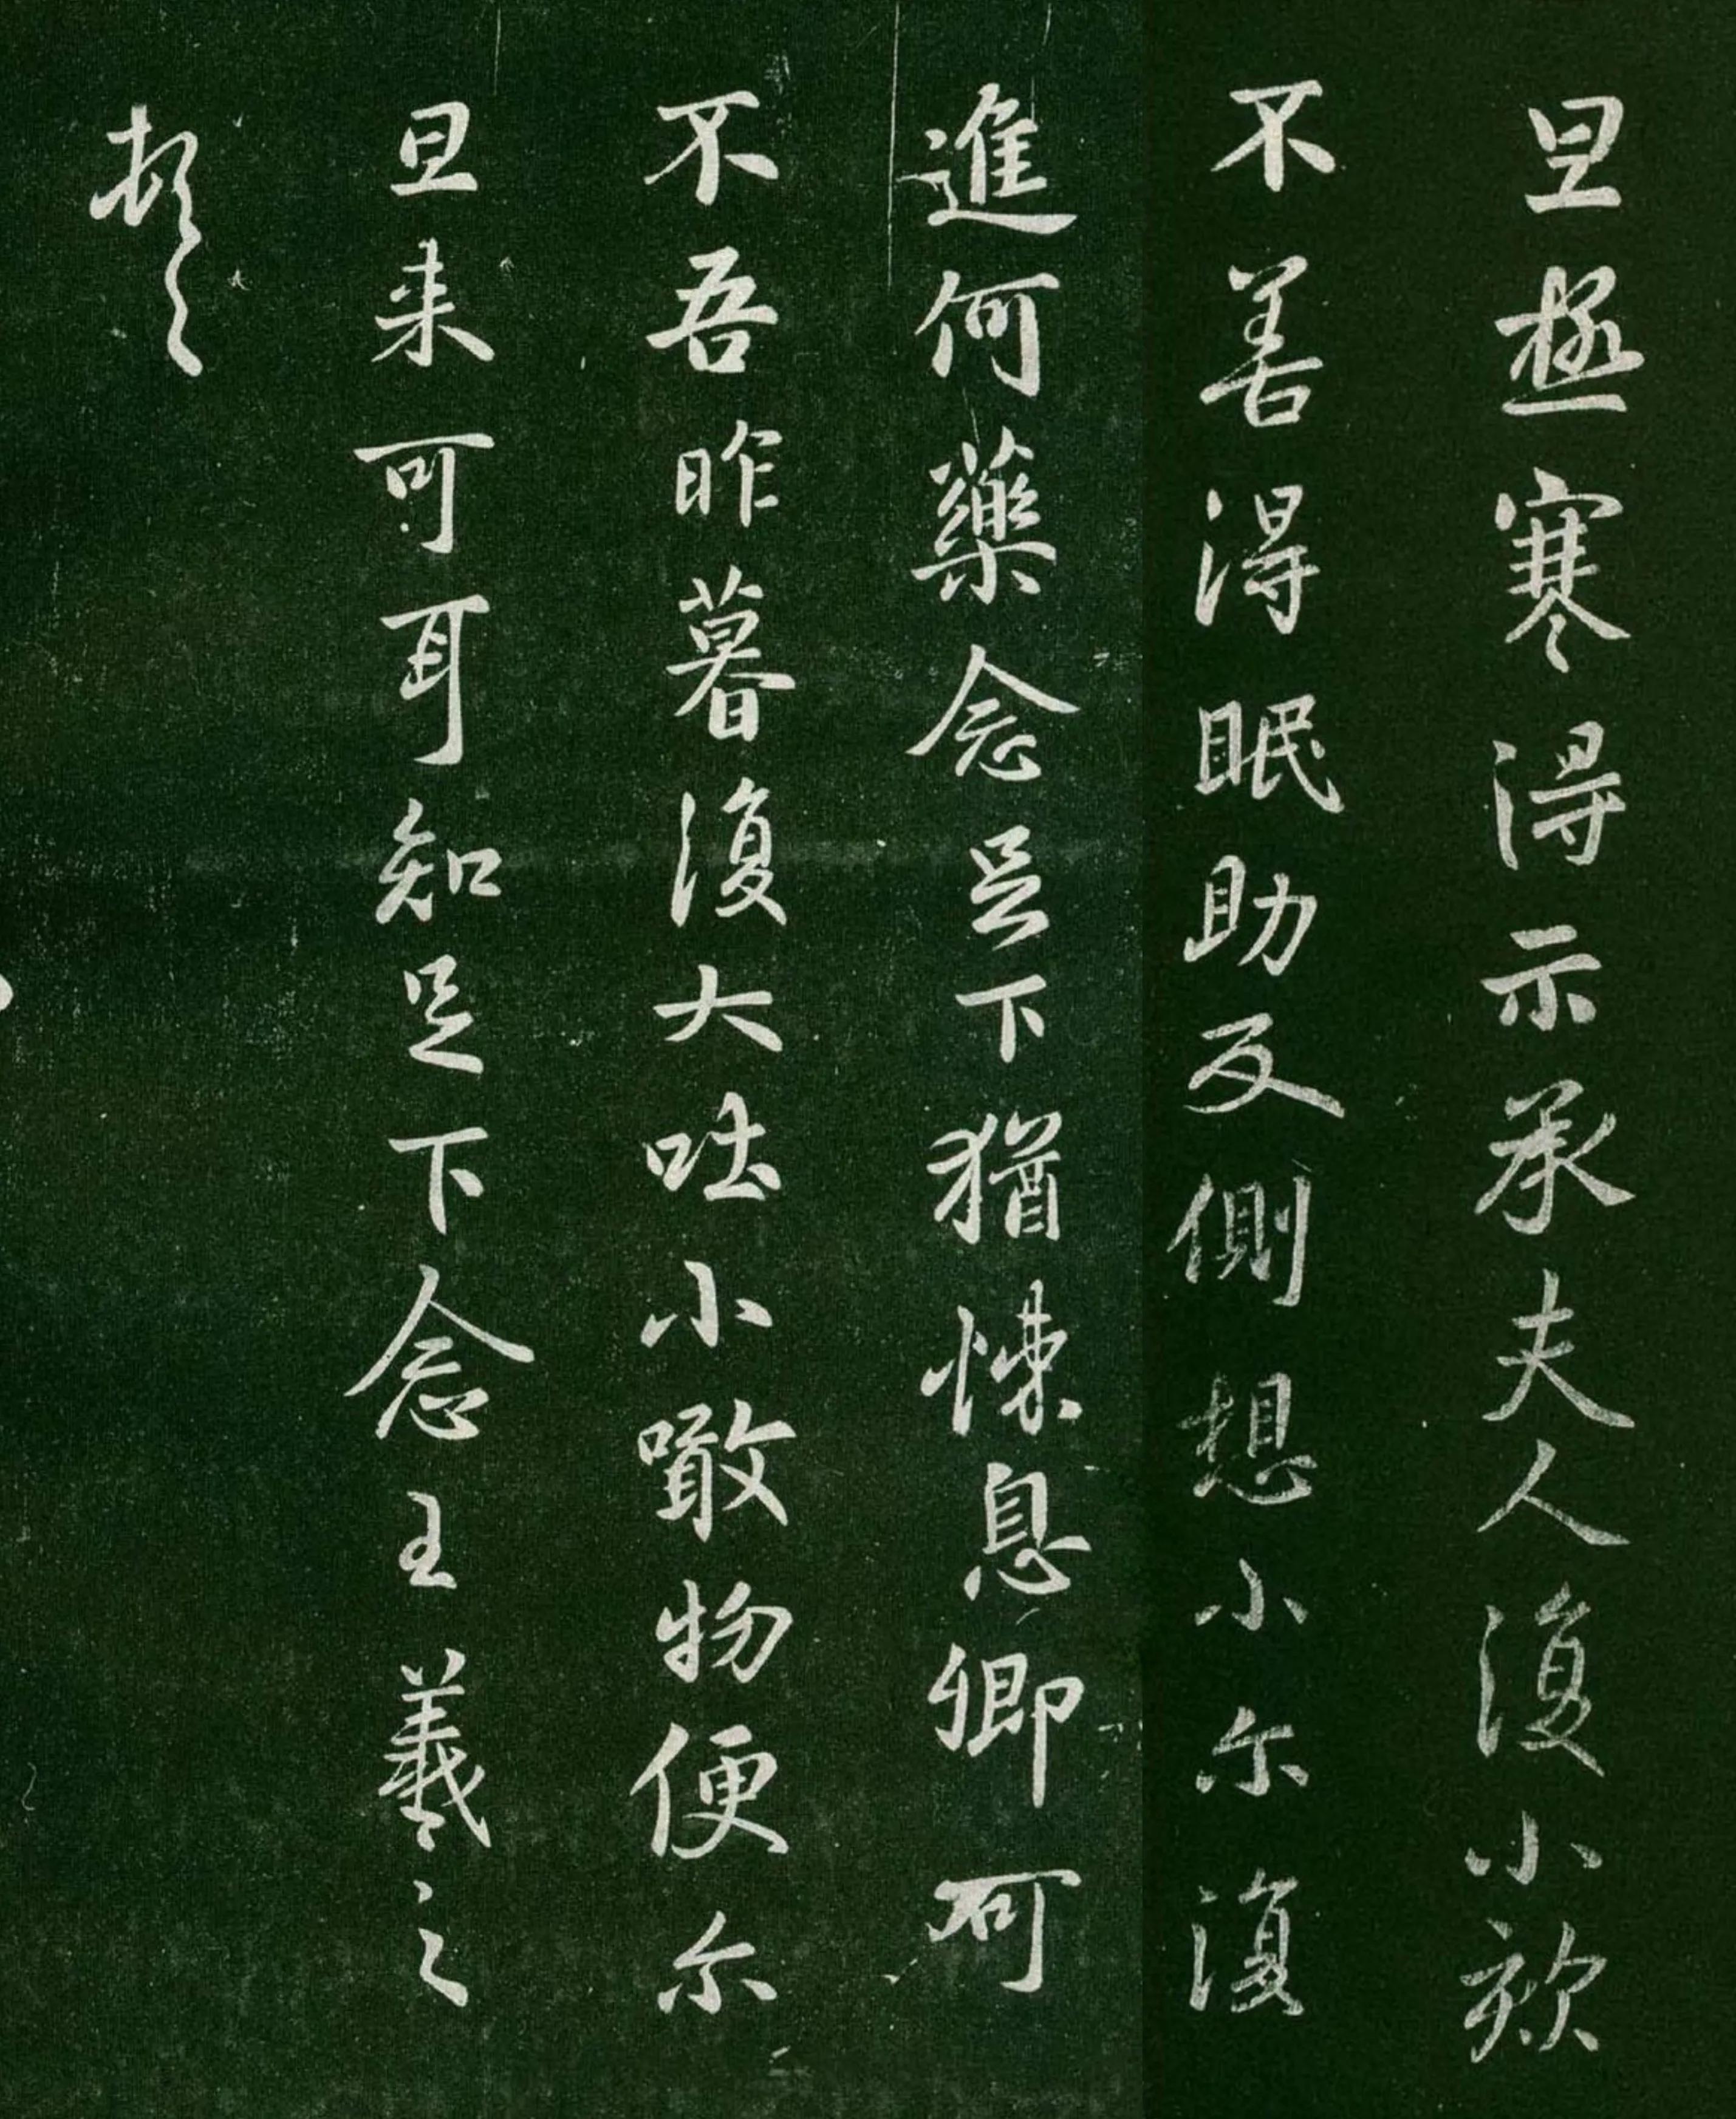 旦極寒得示承夫人復小欬
不善得眠助反側想小尔復
進何藥念足下猶悚息卿可
不吾昨暮復大吐小噉物便尓
旦来可耳知足下念王羲之
頓